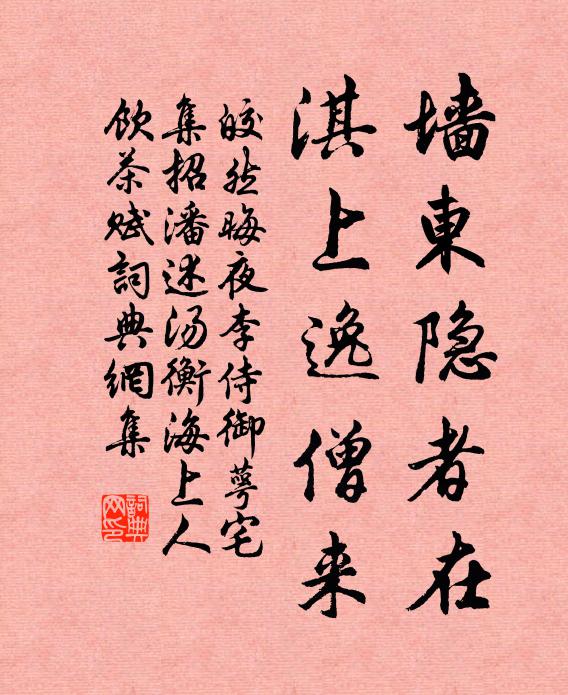 墙東隐者在
淇上逸僧来
皎然晦夜李侍御萼宅
集招潘述汤衡海上人
飲茶赋詞典網集
詞典网印